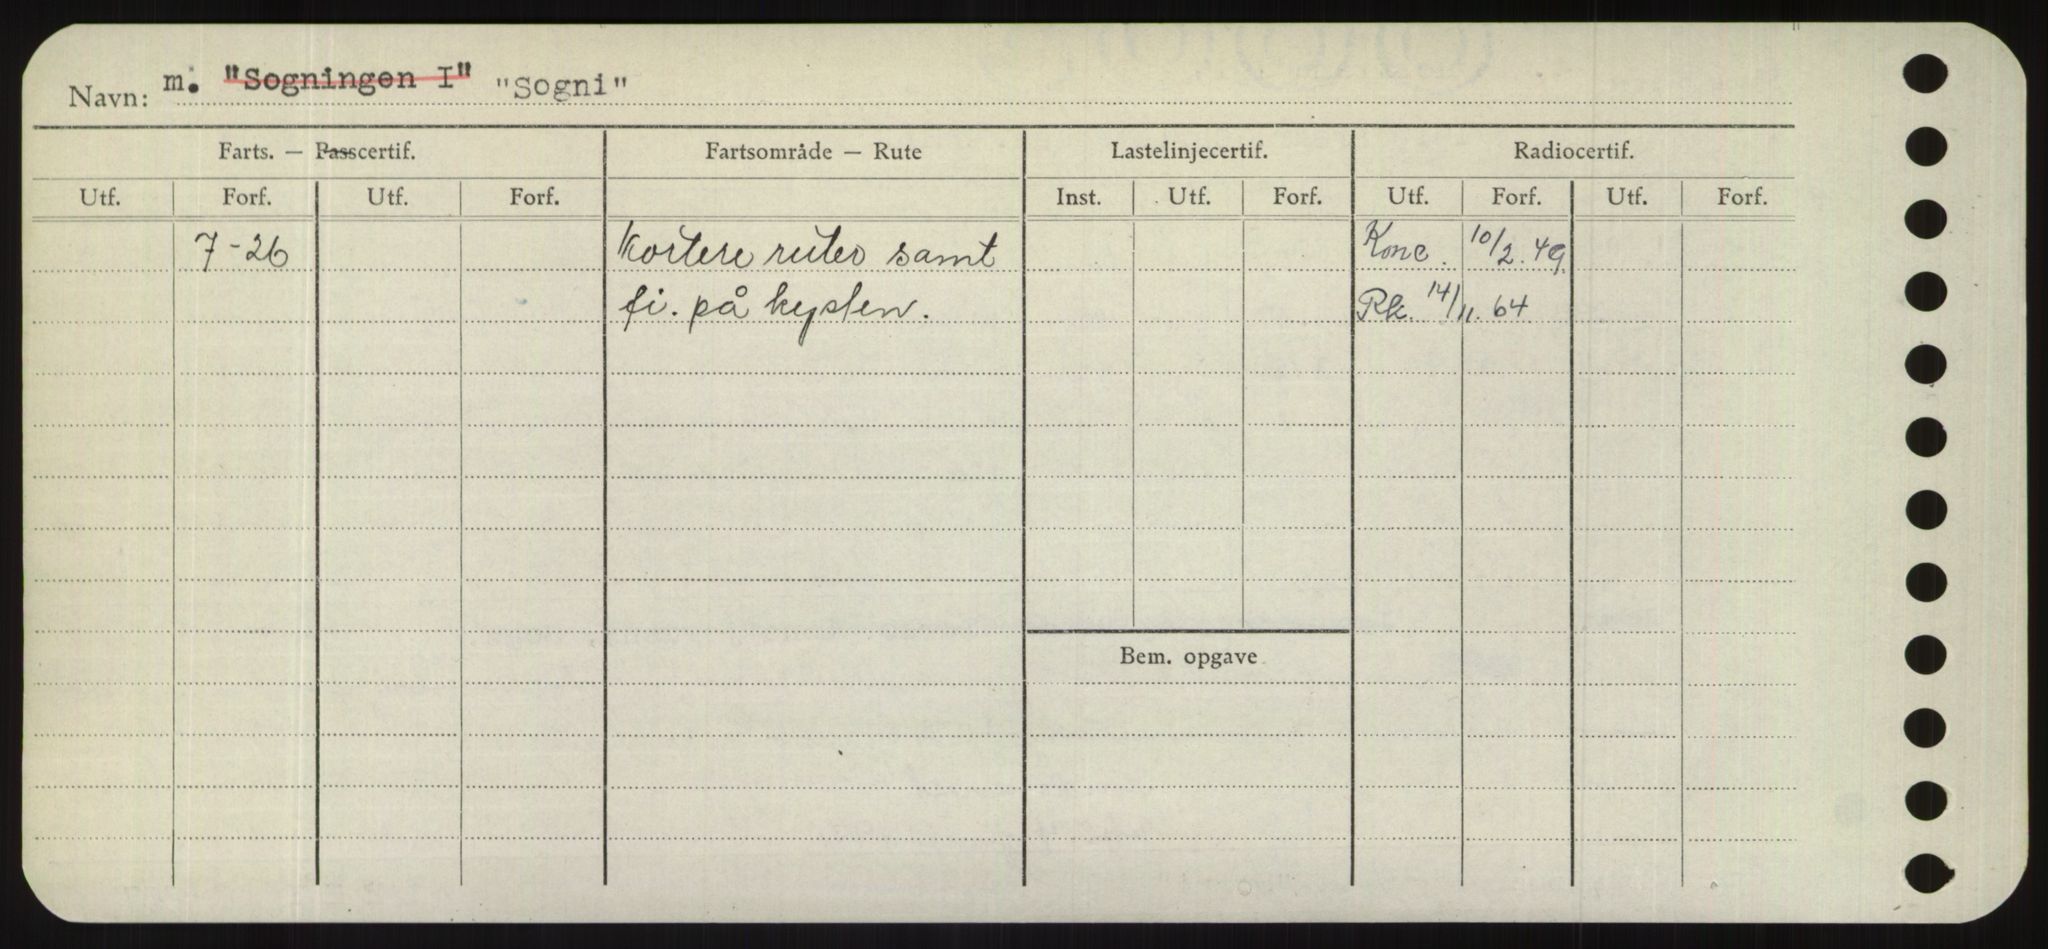 Navn: m. "Sogningen I" "Sogni"
Farts. — Passcertif. Fartsområde — Rute Lastelinjecertif. Radiocertif.
Utf. Forf. Utf. Forf. Inst. Utf. Forf. Utf. Forf. Utf. Forf.
7-26 Kortere ruter samt Konc. 10/2.49.
fi. på kysten. Rk. 14/11.64
Bem. opgave